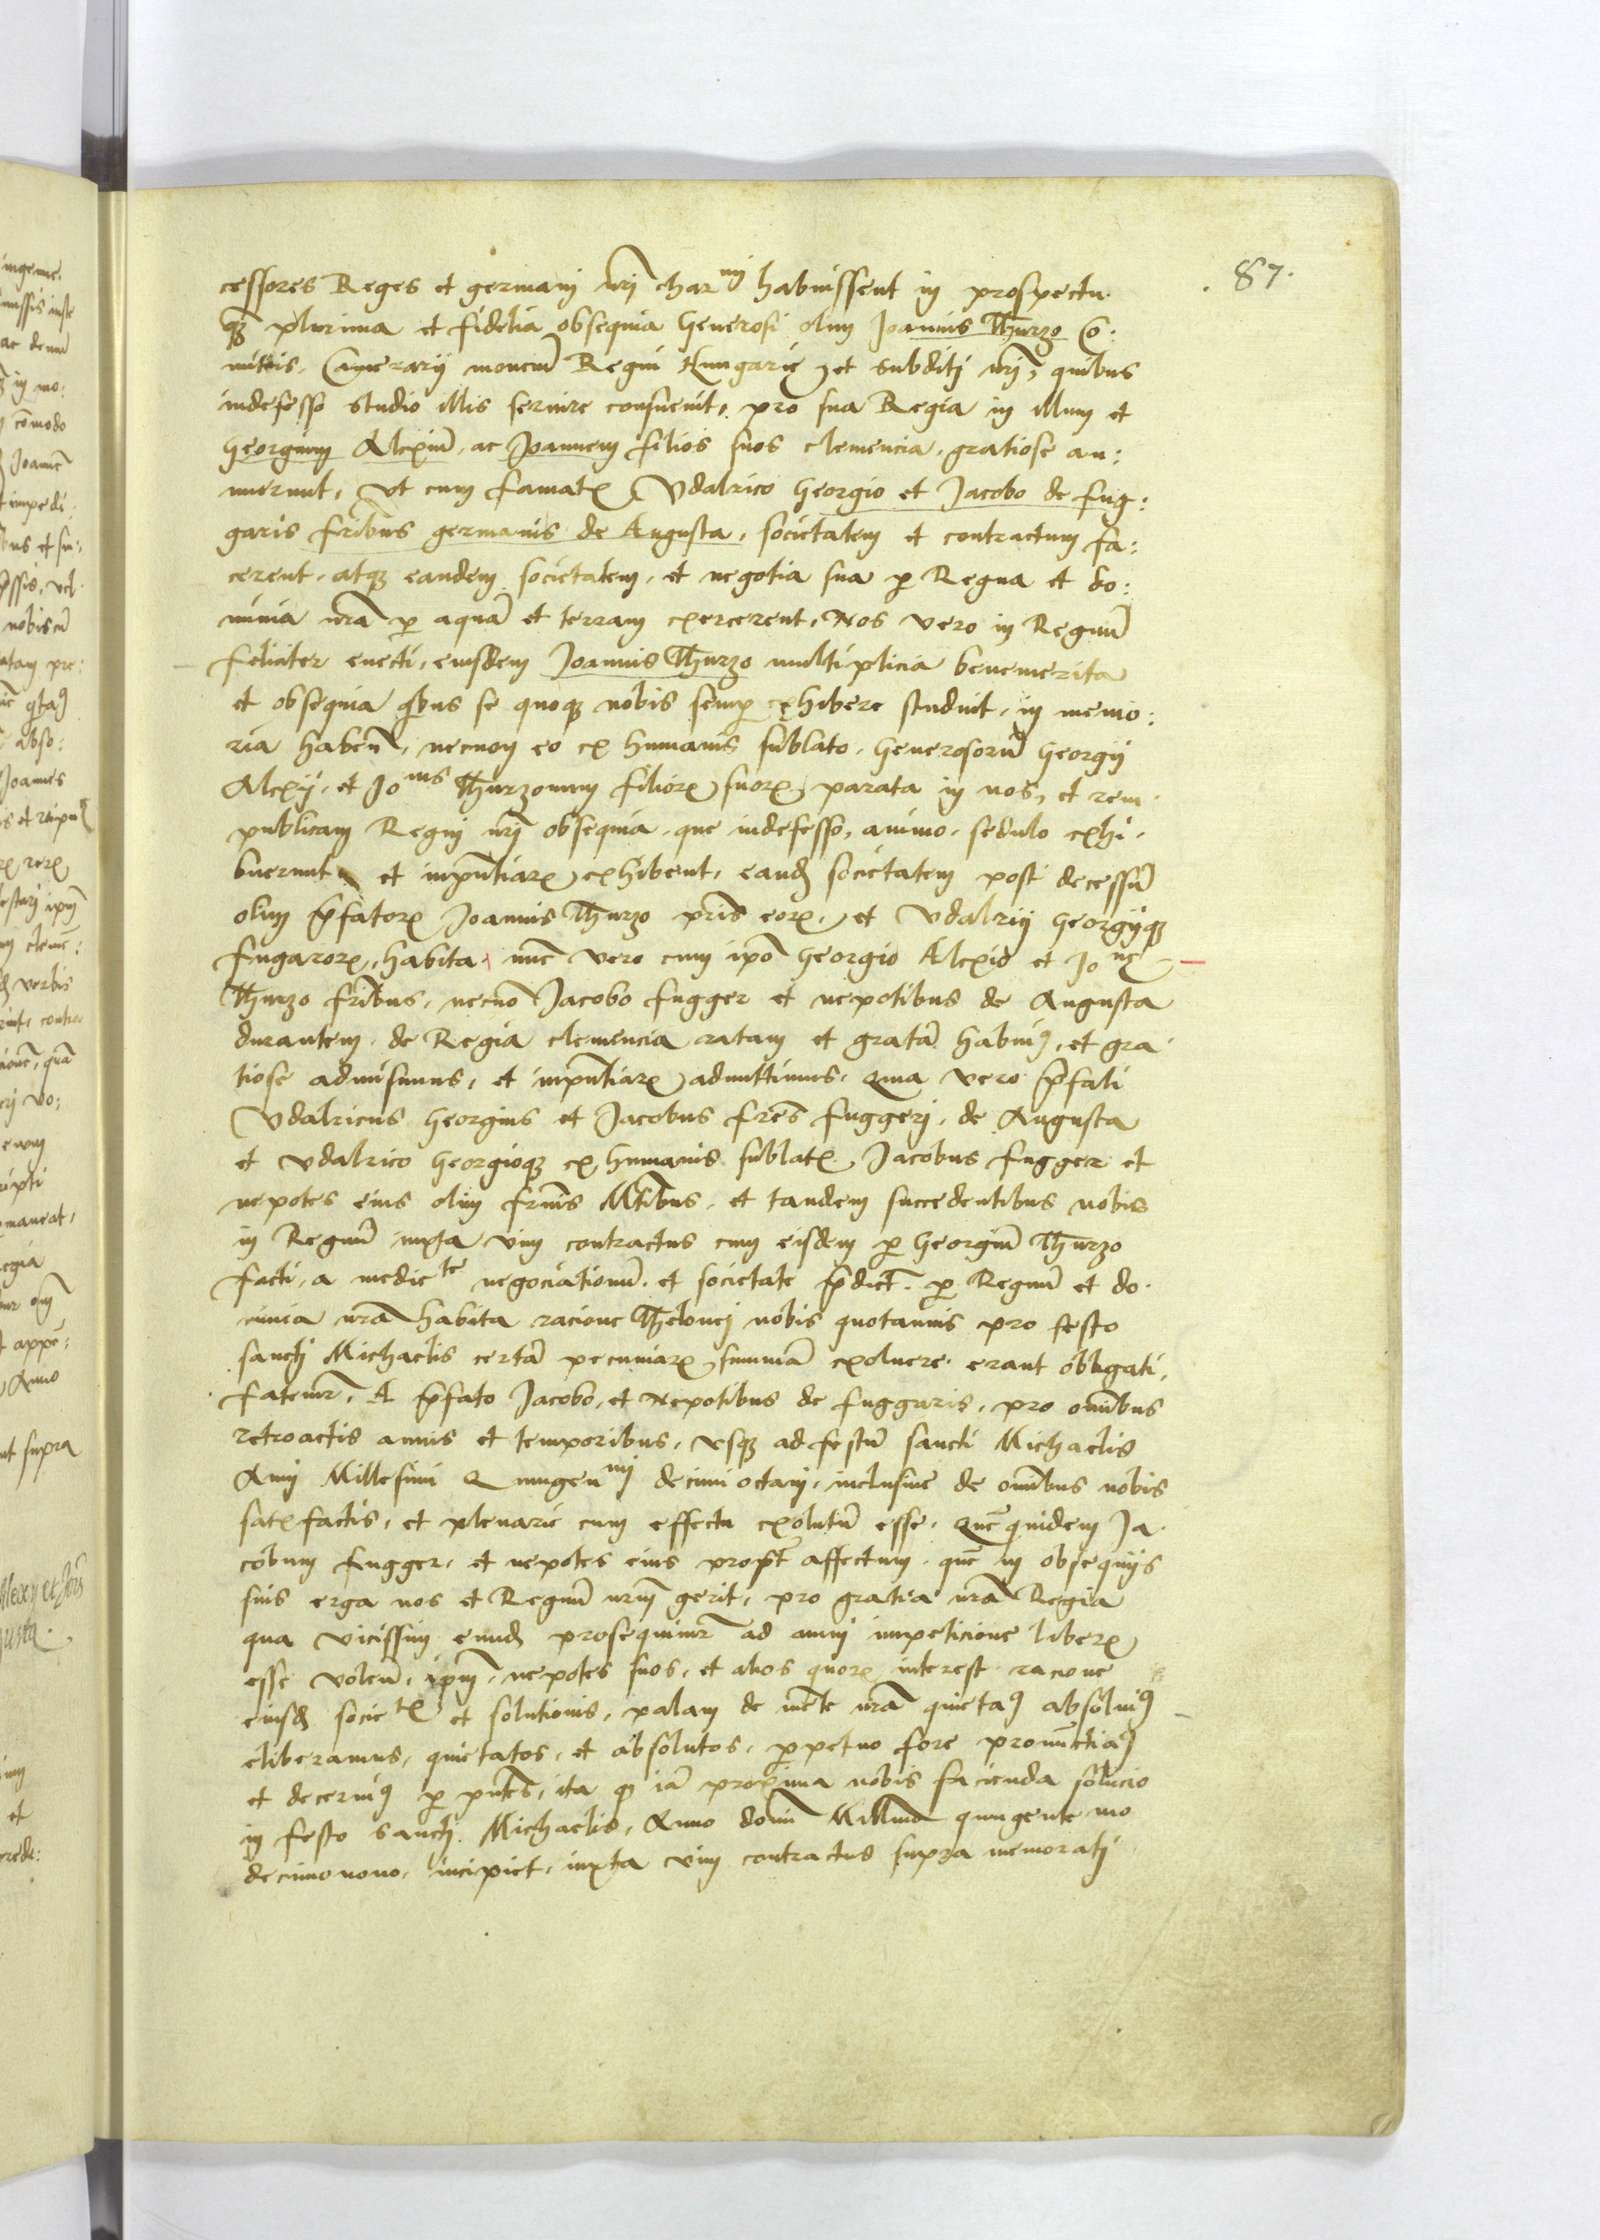 87.
cessores Reges et germani nrj char^mj habuissent in prospectu
qꝫ plurima et fidelia obsequia Generosi olim Joannis Thurzo Co:
mittis, Camerarij moneta͞ Regni Hungarie, et subditj nrj, quibus
indefesso studio illis seruire consueuit, pro sua Regia in illum et
Georgium Alexiu͞, ac Joannem filios suos clemencia, gratiose an:
nuerunt, Vt cum famatꝭ Vdalrico Georgio et Jacobo de Fug:
garis fribus germanis de Augusta, societatem et contractum fa:
cerent, atqꝫ eandem societatem, et negotia sua p Regna et do:
minia nra͞ p aqua͞ et terram exercerent, Nos vero in Regnu͞
feliciter euecti, eiusdem Joannis Thurzo multiplicia benemerita
et obsequia qbus se quoqꝫ nobis semp exhibere studuit, in memo:
ria haben͞, necnon eo ex humanis sublato, Generosoru͞ Georgij
Alexij, et Jo^nis Thurzonum filioꝝ suoꝝ parata in nos, et rem
publicam Regnj nrj obsequia, que indefesso, animo, sedulo exhi
buerunt et inpn͞tiaꝝ exhibent, eandꝫ societatem post decessu͞
olim p͞fatoꝝ Joannis Thurzo pris eoꝝ, et Vdalrij Georgijqꝫ
Fugaroꝝ, habita, nu͞c vero cum ipo͞ Georgio Alexio et Jo^ne
Thurzo fribus, necno͞ Jacobo Fugger et nepotibus de Augusta
durantem, de Regia clemencia ratam et grata͞ habuimꝰ, et gra
tiose admisimus, et inpn͞tiaꝝ admittimus. Quia vero p͞fati
Vdalricus Georgius et Jacobus fres͞ Fuggerj, de Augusta
et Vdalrico Georgioqꝫ ex humanis sublatꝭ, Jacobus Fugger et
nepotes eius olim frnis͞ Mtibus͞, et tandem succedentibus nobis
in Regnu͞ iuxta vim contractus cum eisdem p Georgiu͞ Thurzo
facti, a medie^te negociationu͞, et societate p͞dict͞ p Regnu͞ et do
minia nra͞ habita racione Thelonej nobis quotannis pro festo
sanctj Michaelis certa͞ pecuniaꝝ summa͞ exoluere erant obligati,
Fatemur, A p͞fato Jacobo, et Nepotibus de Fuggaris, pro omi͞bus
retroactis annis et temporibus, vsqꝫ ad festu͞ sancti Michaelis
Anni Millesimi Quingen^mj decimi octaui, inclusiue de omi͞bus nobis
satisfactis, et plenarie cum effectu exolutu͞ esse, Que͞ quidem Ja
cobum Fugger, et nepotes eius propt͞ affectum, que͞ in obsequijs
suis erga nos et Regnu͞ nrm͞ gerit, pro gratia nra͞ Regia
qua vicissim eundꝫ prosequimur ab omni impeticione liberꝝ
esse volen͞, ipm͞, nepotes suos, et alios quoꝝ interest racione
eiusdꝫ socie^tꝭ et solutionis, palam de me͞te nra͞ quietamꝰ absoluimꝰ
eliberamus, quietatos, et absolutos, p petuo fore pronu͞ctiamꝰ
et decernimꝰ p pn͞tes, ita qꝫ ia͞ proxima nobis facienda solucio
in festo sanctj Michaelis, Anno domi͞ Millmo͞ quingentesimo
decimonono, incipiet, iuxta vim contractus supra memoratj